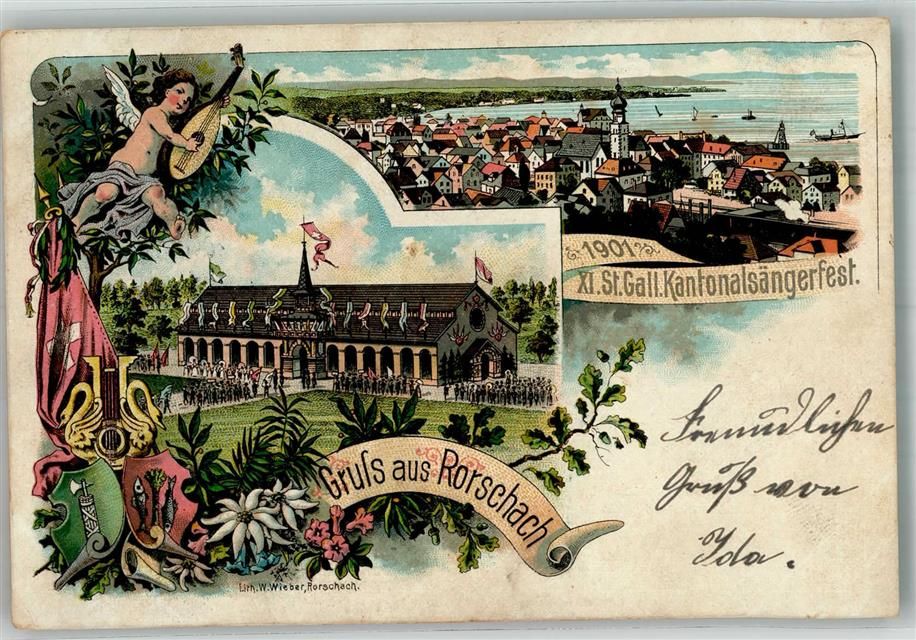 1901
XI. St. Gall. Kantonalsängerfest.
Gruss aus Rorschach
Freundlichen
Gruß von
Ida.
Lith. W. Wieber, Rorschach.